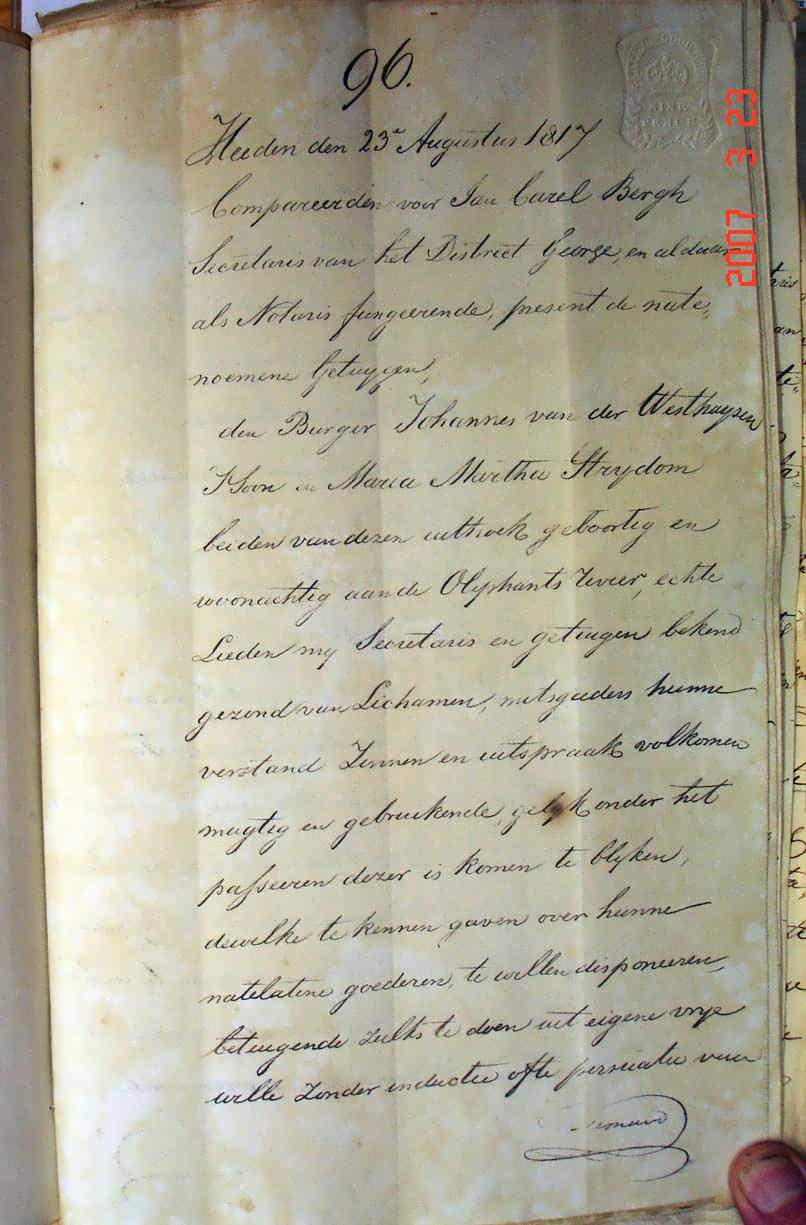 96.
NINE
PENCE
2007 3 23
Heeden den 23e Augustus 1817
Compareerden voor Jan Carel Bergh
Secretaris van het District George, en aldaar
als Notaris fungeerende, present de nate„
noemene Getuygen,
den Burger Johannes van der Westhuysen
JSoon en Maria Martha Strydom
beiden van dezen uithoek geboortig en
woonachtig aan de Olyphants rivier, echte
Lieden my Secretaris en getuigen bekend
gezond van Lichamen, mitsgaders hunne
verstand Zinnen en uitspraak volkomen
magtig en gebruikende, gelyk onder het
passeeren dezer is komen te blyken,
dewelke te kennen gaven over hunne
natelatene goederen, te willen disponeeren,
betuigende zulks te doen uit eigene vrye
wille Zonder inductie ofte persuatie van
iemand